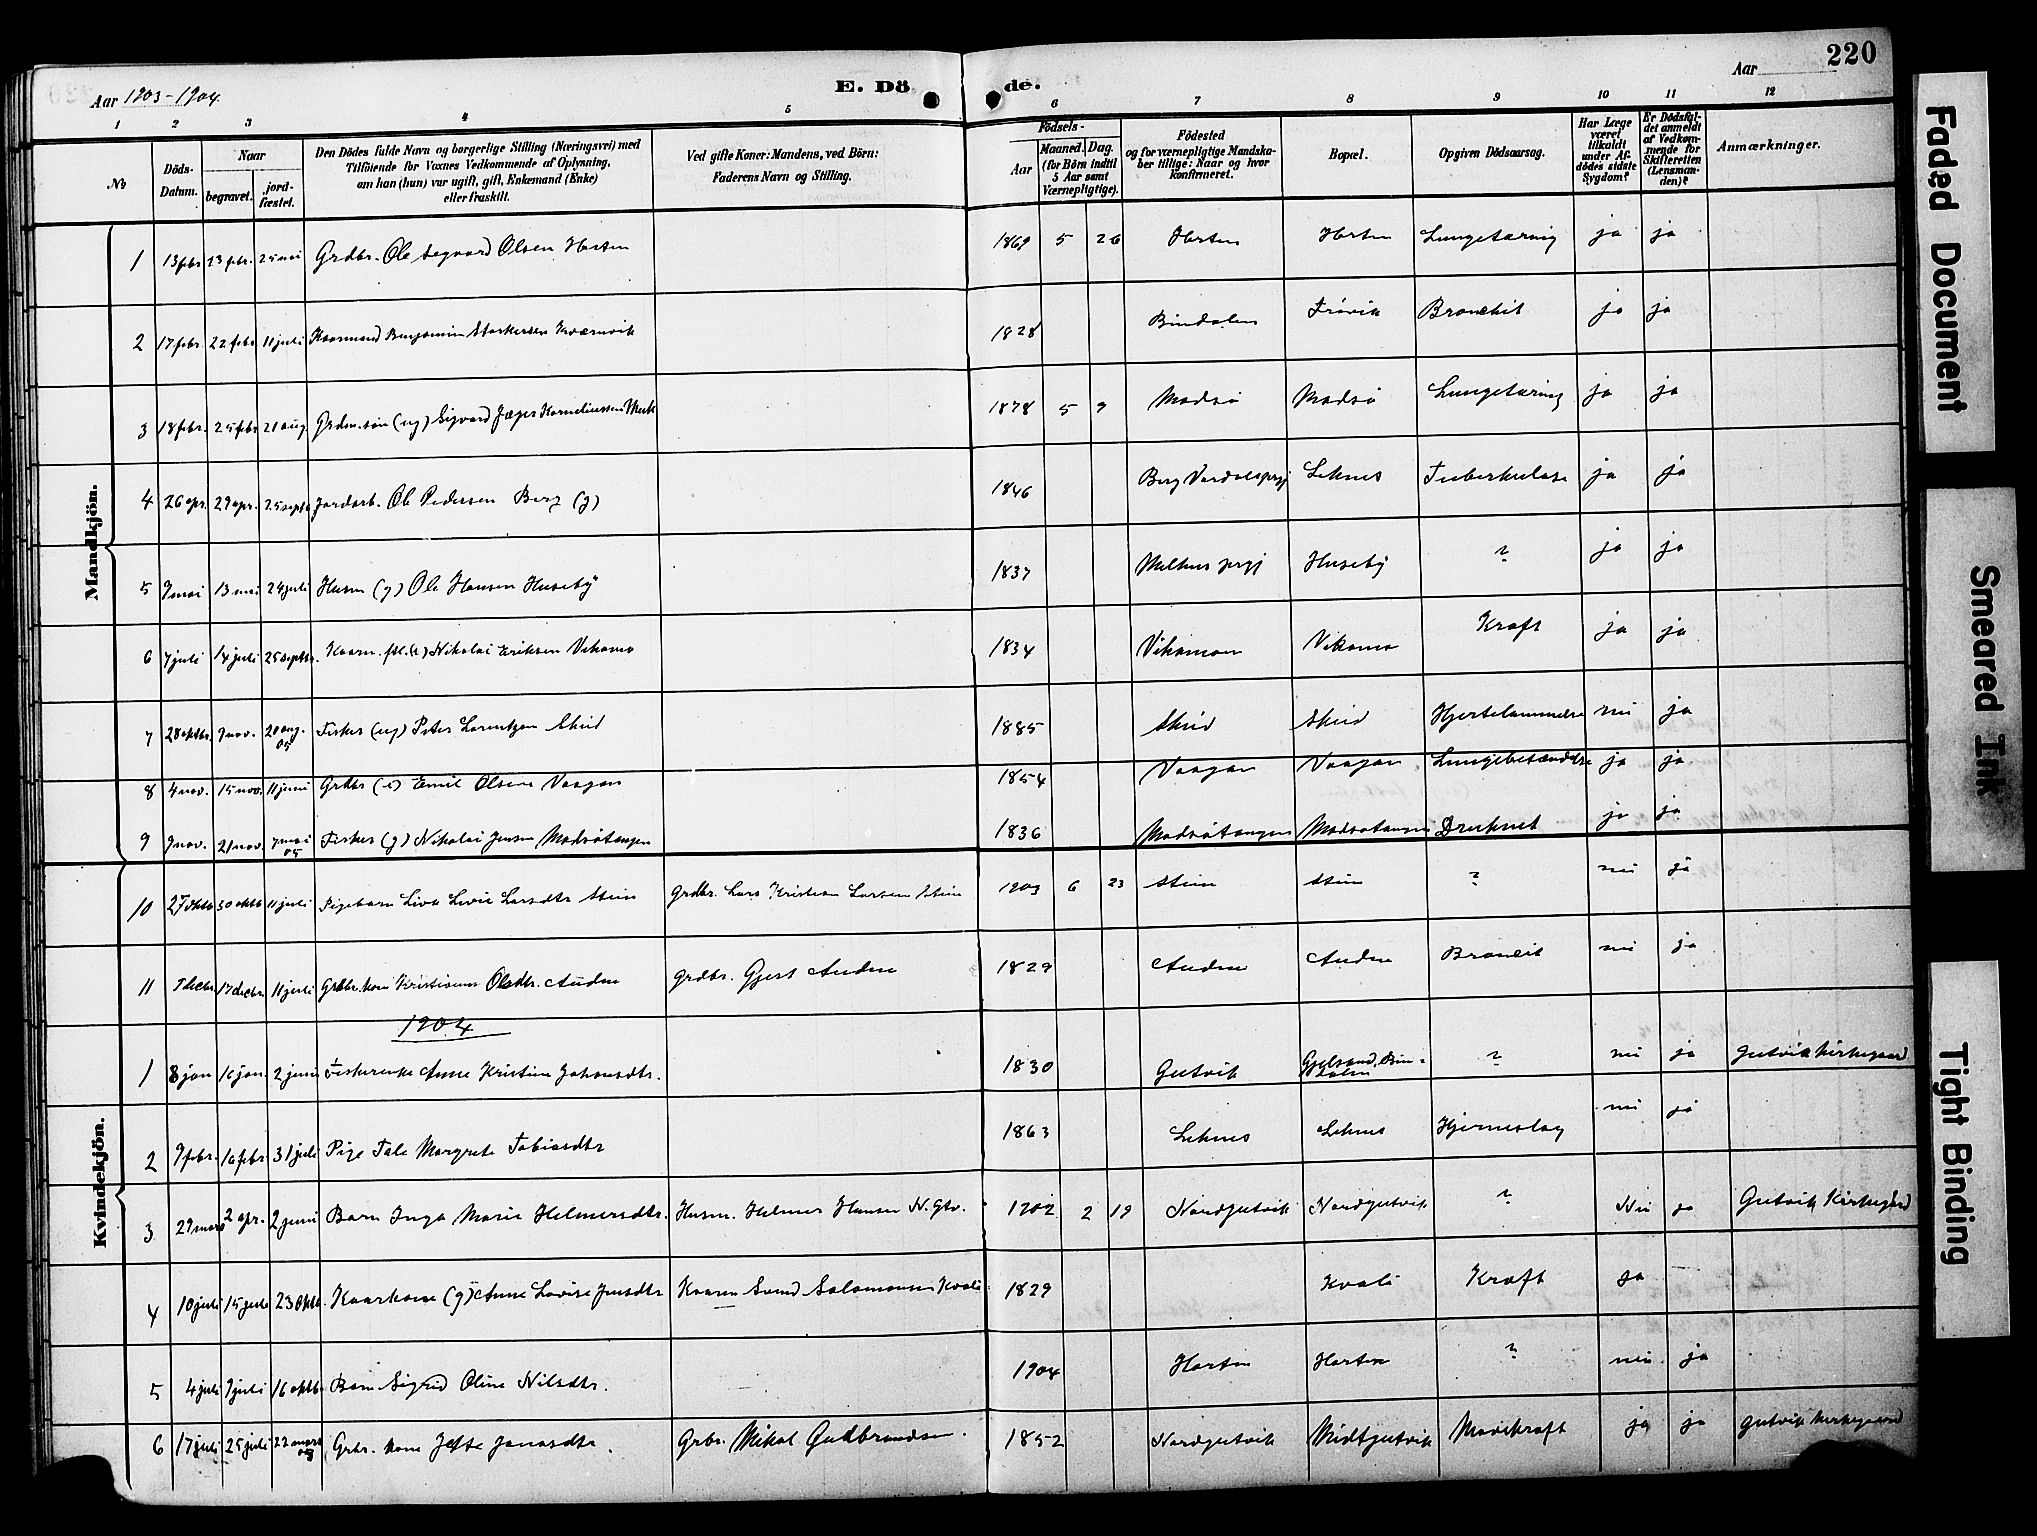 220
Aar 1903-1904
E. Dö de.
Aar
1 2 3 4 5 6 7 8 9 10 11 12
No
Döds-Datum.
Naar
begravet.
jord-fæstet.
Den Dödes fulde Navn og borgerlige Stilling (Næringsvei) med
Tilföiende for Voxnes Vedkommende af Oplysning,
om han (hun) var ugift, gift, Enkemand (Enke)
eller fraskilt.
Ved gifte Koner: Mandens, ved Börn:
Faderens Navn og Stilling.
Födsels-
Aar
Maaned. Dag.
(for Börn indtil
5 Aar samt
Værnepligtige).
Födested
og for værnepligtige Mandska-
ber tillige: Naar og hvor
konfirmeret.
Bopæl.
Opgiven Dödsaarsag.
Har Læge
været
tilkaldt
under Af-
dödes sidste
Sygdom?
Er Dödsfal-
det anmeldt
af Vedkom-
mende for
Skifteretten
(Lensman-
den)?
Anmærkninger.
Mandkjön.
1 13 febr. 23 febr. 25 mai Grdbr. Ole Segvard Olsen Horten 1869 5 26 Horten Horten Lungetæring ja ja
2 17 febr. 22 febr. 11 juli Kaarmand Benjamin Storkersen Kværnvik 1828 Bindalen Frøvik Bronchit ja ja
3 18 febr. 25 febr. 21 aug. Grdm.søn (ug) Sigvard Jæger Korneliussen 1878 5 9 Madsø Madsø Lungetæring ja ja
4 26 apr. 29 apr. 25 septb. Jordarb. Ole Pedersen Berg (g) 1846 Berg Leknes Tuberkulose ja ja
5 9 mai 13 mai 24 juli Husm (g) Ole Hansen Huseby 1837 Melhus prgj Huseby ? ja ja
6 7 juli 14 juli 25 septbr. Kaarm. (e) Nikolai Eriksen Vikamo 1834 Vikamoen Vikamo Kræft ja ja
7 28 oktbr. 9 nov. 20 aug. 05 Fisker (ug) Peter Lorentzen Skeid 1885 Skeid Skeid Hjertelammelse nei ja
8 4 nov. 15 nov. 11 juni Grdbr (e) Emil Olsen Vaagan 1854 Vaagan Vaagan Lungebetændelse ja ja
9 9 nov. 21 nov. 7 mai 05 Fisker (g) Nikolai Jensen Madsøtangen 1836 Madsøtangen Madsøtangen Druknet ja ja
Kvindekjön.
10 27 oktb 30 oktb 11 juli Pigebarn Livie Larsdtr Stein Grdbr. Lars Kristian Larsen Stein 1903 6 23 Stein Stein ? nei ja
11 7 decbr. 17 decbr. 11 juli Grdbr. kone Kristianna Olsdtr. Audne Grdbr. Gjert Audne 1829 Audne Audne Broncit nei ja
1904
1 8 jan 16 jan. 2 juni Fiskerenke Anne Kristine Johansdtr. 1830 Gutvik Gjelsund, Bin-
dalen ? nei ja Gutvik kirkegaard
2 9 febr. 16 febr. 31 juli Pige Tale Margrete Tobiasdtr 1863 Leknes Leknes Hjerneslag nei ja
3 29 mars 2 apr. 2 juni Barn Inga Marie Helmersdtr. Husm. Helmer Hansen N. Gtv. 1902 2 19 Nordgutvik Nordgutvik ? Nei ja Gutvik Kirkegård
4 10 juli 15 juli 23 Oktb. Kaarkone (g) Anne Lovise Jensdtr Kaarm Svend Salomonsen Kvali 1829 Kvali Kræft ja
5 4 juli 9 juli 16 oktb. Barn Sigrid Oline Nilsdtr. 1904 Horten Horten ? nei ja
6 17 juli 25 juli 22 05 Grbr. kone Jette Jonasdtr. Grbr. Mikal Gudbrandsen. 1852 Nordgutvik Midtgutvik Mavekræft ja ja Gutvik kirkegaard
Faded Document
Smeared Ink
Tight Binding